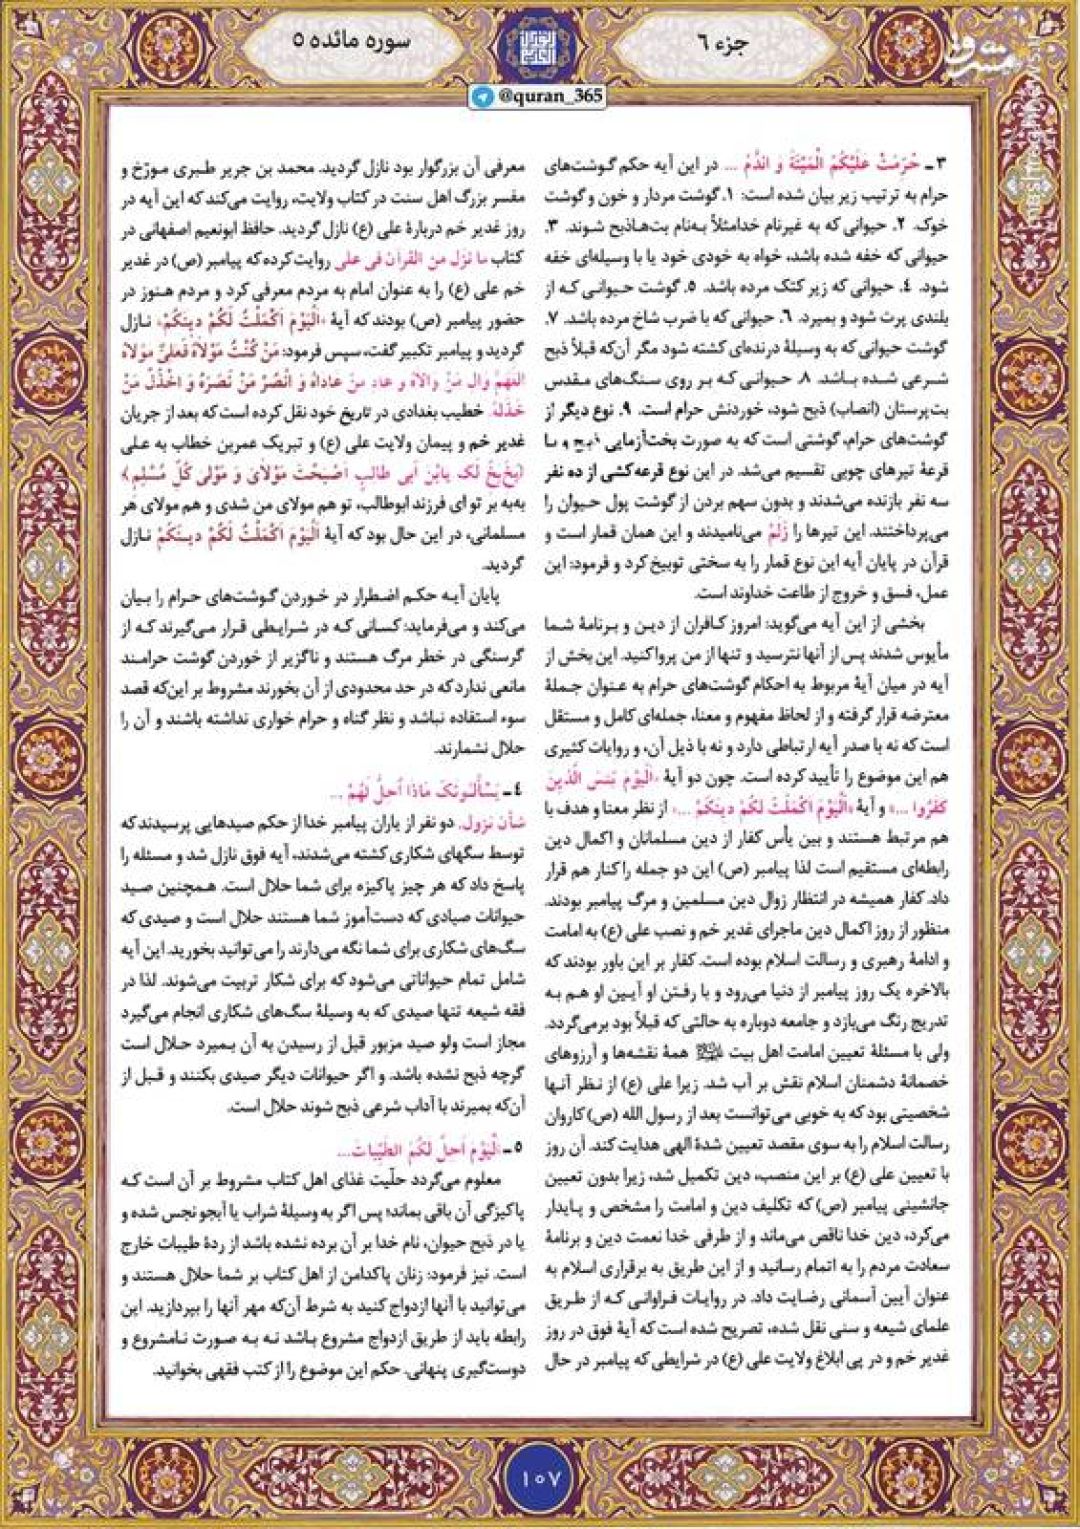 جزء ۶
سوره مائده ۵
مشرق
@quran_365
۳ـ حُرِّمَتْ عَلَیْکُمُ الْمَیْتَةُ وَ الدَّمُ ... در این آیه حکم گوشت‌های
حرام به ترتیب زیر بیان شده است: ۱. گوشت مردار و خون و گوشت
خوک. ۲. حیوانی که به غیرنام خدامثلاً به‌نام بت‌هاذبح شوند. ۳.
حیوانی که خفه شده باشد، خواه به خودی خود یا با وسیله‌ای خفه
شود. ۴. حیوانی که زیر کتک مرده باشد. ۵. گوشت حیوانی که از
بلندی پرت شود و بمیرد. ۶. حیوانی که با ضرب شاخ مرده باشد. ۷.
گوشت حیوانی که به وسیلهٔ درنده‌ای کشته شود مگر آن‌که قبلاً ذبح
شرعی شده باشد. ۸. حیوانی که بر روی سنگ‌های مقدس
بت‌پرستان (انصاب) ذبح شود، خوردنش حرام است. ۹. نوع دیگر از
گوشت‌های حرام، گوشتی است که به صورت بخت‌آزمایی ذبح و با
قرعهٔ تیرهای چوبی تقسیم می‌شد. در این نوع قرعه‌کشی از ده نفر
سه نفر بازنده می‌شدند و بدون سهم بردن از گوشت پول حیوان را
می‌پرداختند. این تیرها را زَلَم می‌نامیدند و این همان قمار است و
قرآن در پایان آیه این نوع قمار را به سختی توبیخ کرد و فرمود: این
عمل، فسق و خروج از طاعت خداوند است.
بخشی از این آیه می‌گوید: امروز کافران از دین و برنامهٔ شما
مأیوس شدند پس از آنها نترسید و تنها از من پروا کنید. این بخش از
آیه در میان آیهٔ مربوط به احکام گوشت‌های حرام به عنوان جملهٔ
معترضه قرار گرفته و از لحاظ مفهوم و معنا، جمله‌ای کامل و مستقل
است که نه با صدر آیه ارتباطی دارد و نه با ذیل آن، و روایات کثیری
هم این موضوع را تأیید کرده است. چون دو آیهٔ «اَلْیَوْمَ یَئِسَ الَّذینَ
کَفَرُوا ...» و آیهٔ «اَلْیَوْمَ اَکْمَلْتُ لَکُمْ دینَکُمْ ...» از نظر معنا و هدف با
هم مرتبط هستند و بین یأس کفار از دین مسلمانان و اکمال دین
رابطه‌ای مستقیم است لذا پیامبر (ص) این دو جمله را کنار هم قرار
داد. کفار همیشه در انتظار زوال دین مسلمین و مرگ پیامبر بودند.
منظور از روز اکمال دین ماجرای غدیر خم و نصب علی (ع) به امامت
و ادامهٔ رهبری و رسالت اسلام بوده است. کفار بر این باور بودند که
بالاخره یک روز پیامبر از دنیا می‌رود و با رفتن او آیین او هم به
تدریج رنگ می‌بازد و جامعه دوباره به حالتی که قبلاً بود برمی‌گردد.
ولی با مسئلهٔ تعیین امامت اهل بیت همهٔ نقشه‌ها و آرزوهای
خصمانهٔ دشمنان اسلام نقش بر آب شد. زیرا علی (ع) از نظر آنها
شخصیتی بود که به خوبی می‌توانست بعد از رسول الله (ص) کاروان
رسالت اسلام را به سوی مقصد تعیین شدهٔ الهی هدایت کند. آن روز
با تعیین علی (ع) بر این منصب، دین تکمیل شد، زیرا بدون تعیین
جانشینی پیامبر (ص) که تکلیف دین و امامت را مشخص و پایدار
می‌کرد، دین خدا ناقص می‌ماند و از طرفی خدا نعمت دین و برنامهٔ
سعادت مردم را به اتمام رسانید و از این طریق به برقراری اسلام به
عنوان آیین آسمانی رضایت داد. در روایات فراوانی که از طریق
علمای شیعه و سنی نقل شده، تصریح شده است که آیهٔ فوق در روز
غدیر خم و در پی ابلاغ ولایت علی (ع) در شرایطی که پیامبر در حال
معرفی آن بزرگوار بود نازل گردید. محمد بن جریر طبری مورّخ و
مفسر بزرگ اهل سنت در کتاب ولایت، روایت می‌کند که این آیه در
روز غدیر خم دربارهٔ علی (ع) نازل گردید. حافظ ابونعیم اصفهانی در
کتاب ما نزل من القرآن فی علی روایت کرده که پیامبر (ص) در غدیر
خم علی (ع) را به عنوان امام به مردم معرفی کرد و مردم هنوز در
حضور پیامبر (ص) بودند که آیهٔ «اَلْیَوْمَ اَکْمَلْتُ لَکُمْ دینَکُمْ» نازل
گردید و پیامبر تکبیر گفت، سپس فرمود: مَنْ کُنْتُ مَوْلاهُ فَعَلیٌّ مَوْلاهُ
اللّهُمَّ والِ مَنْ والاهُ و عادِ مَنْ عاداهُ وَ انْصُرْ مَنْ نَصَرَهُ وَ اخْذُلْ مَنْ
خَذَلَهُ. خطیب بغدادی در تاریخ خود نقل کرده است که بعد از جریان
غدیر خم و پیمان ولایت علی (ع) و تبریک عمربن خطاب به علی
(بَخٍّ بَخٍّ لَکَ یابْنَ اَبی طالِبٍ اَصْبَحْتَ مَوْلایَ وَ مَوْلی کُلِّ مُسْلِمٍ)
به‌به بر تو ای فرزند ابوطالب، تو هم مولای من شدی و هم مولای هر
مسلمانی، در این حال بود که آیهٔ اَلْیَوْمَ اَکْمَلْتُ لَکُمْ دینَکُمْ نازل
گردید.
پایان آیه حکم اضطرار در خوردن گوشت‌های حرام را بیان
می‌کند و می‌فرماید: کسانی که در شرایطی قرار می‌گیرند که از
گرسنگی در خطر مرگ هستند و ناگزیر از خوردن گوشت حرامند
مانعی ندارد که در حد محدودی از آن بخورند مشروط بر این‌که قصد
سوء استفاده نباشد و نظر گناه و حرام خواری نداشته باشند و آن را
حلال نشمارند.
۴ـ یَسْأَلُونَکَ ماذا اُحِلَّ لَهُمْ ...
شأن نزول. دو نفر از یاران پیامبر خدا از حکم صیدهایی پرسیدند که
توسط سگهای شکاری کشته می‌شدند، آیه فوق نازل شد و مسئله را
پاسخ داد که هر چیز پاکیزه برای شما حلال است. همچنین صید
حیوانات صیادی که دست‌آموز شما هستند حلال است و صیدی که
سگ‌های شکاری برای شما نگه می‌دارند را می‌توانید بخورید. این آیه
شامل تمام حیواناتی می‌شود که برای شکار تربیت می‌شوند. لذا در
فقه شیعه تنها صیدی که به وسیلهٔ سگ‌های شکاری انجام می‌گیرد
مجاز است ولو صید مزبور قبل از رسیدن به آن بمیرد حلال است
گرچه ذبح نشده باشد. و اگر حیوانات دیگر صیدی بکنند و قبل از
آن‌که بمیرند با آداب شرعی ذبح شوند حلال است.
۵ـ اَلْیَوْمَ اُحِلَّ لَکُمُ الطَّیِّباتُ...
معلوم می‌گردد حلّیت غذای اهل کتاب مشروط بر آن است که
پاکیزگی آن باقی بماند؛ پس اگر به وسیلهٔ شراب یا آبجو نجس شده و
یا در ذبح حیوان، نام خدا بر آن برده نشده باشد از ردهٔ طیبات خارج
است. نیز فرمود: زنان پاکدامن از اهل کتاب بر شما حلال هستند و
می‌توانید با آنها ازدواج کنید به شرط آن‌که مهر آنها را بپردازید. این
رابطه باید از طریق ازدواج مشروع باشد نه به صورت نامشروع و
دوست‌گیری پنهانی. حکم این موضوع را از کتب فقهی بخوانید.
۱۰۷